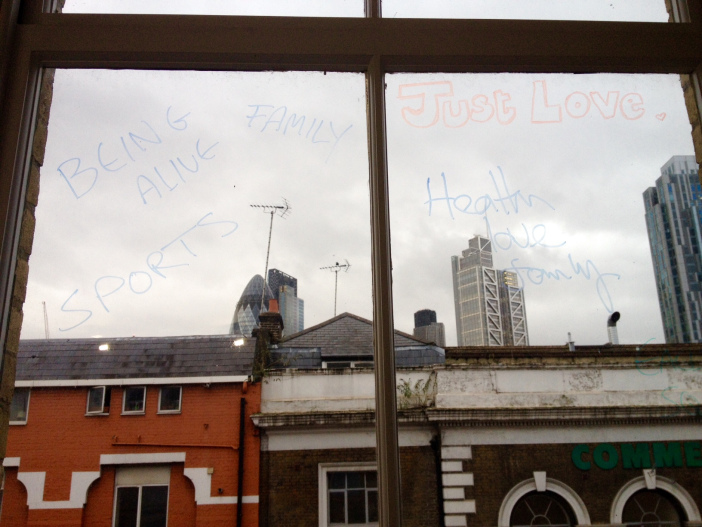 BEING
ALIVE
FAMILY
SPORTS
Just Love.
Health
love
family
COMME